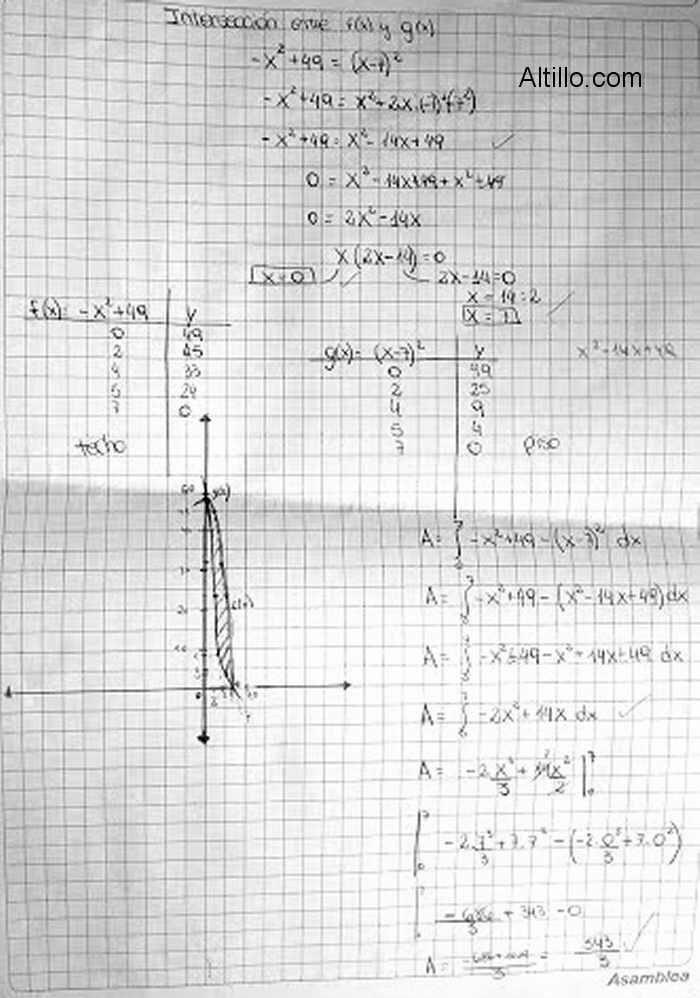 Intersección entre f(x) y g(x)
Altillo.com
-x²+49 = (x-7)²
-x²+49 = x²+2x.(-7)+(-7²)
-x²+49 = x²-14x+49
0 = x²-14x+49+x²-49
0 = 2x²-14x
x(2x-14)=0
x=0
2x-14=0
x = 14:2
x = 7
f(x): -x²+49 | y
0 | 49
2 | 45
4 | 33
5 | 24
7 | 0
techo
g(x)= (x-7)² | y
0 | 49
2 | 25
4 | 9
5 | 4
7 | 0
piso
x²-14x+49
g(x)
f(x)
A= ∫ -x²+49-(x-7)² dx
A= ∫ -x²+49-(x²-14x+49)dx
A= ∫ -x²+49-x²+14x-49 dx
A= ∫ -2x²+14x dx
A= -2x³/3 + 14x²/2 |
-2.7³/3+7.7²-(-2.0³/3+7.0²)
-686/3 + 343 -0
A= = 343/3
Asamblea